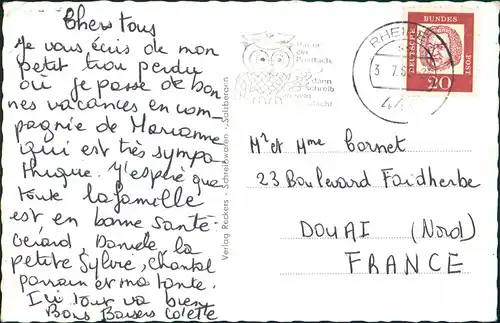 Chers tous
Je vous écris de mon
petit trou perdu
où je passe de bon
nes vacances en com
pagnie de Marianne
qui est très sympa
thique. J'espère que
toute la famille
est en bonne santé-
Gérard, Danièle, la
petite Sylvie, Chantal
parrain et ma tante.
Ici tout va bien
Bons Baisers Colette
Verlag Reckers - Schreibwaren - Salzbergen
Hat er
der
Postfach,
dann
schreib
RHEINE
DEUTSCHE BUNDESPOST
20
Mr et Mme Cornet
23 Boulevard Faidherbe
DOUAI (Nord)
FRANCE